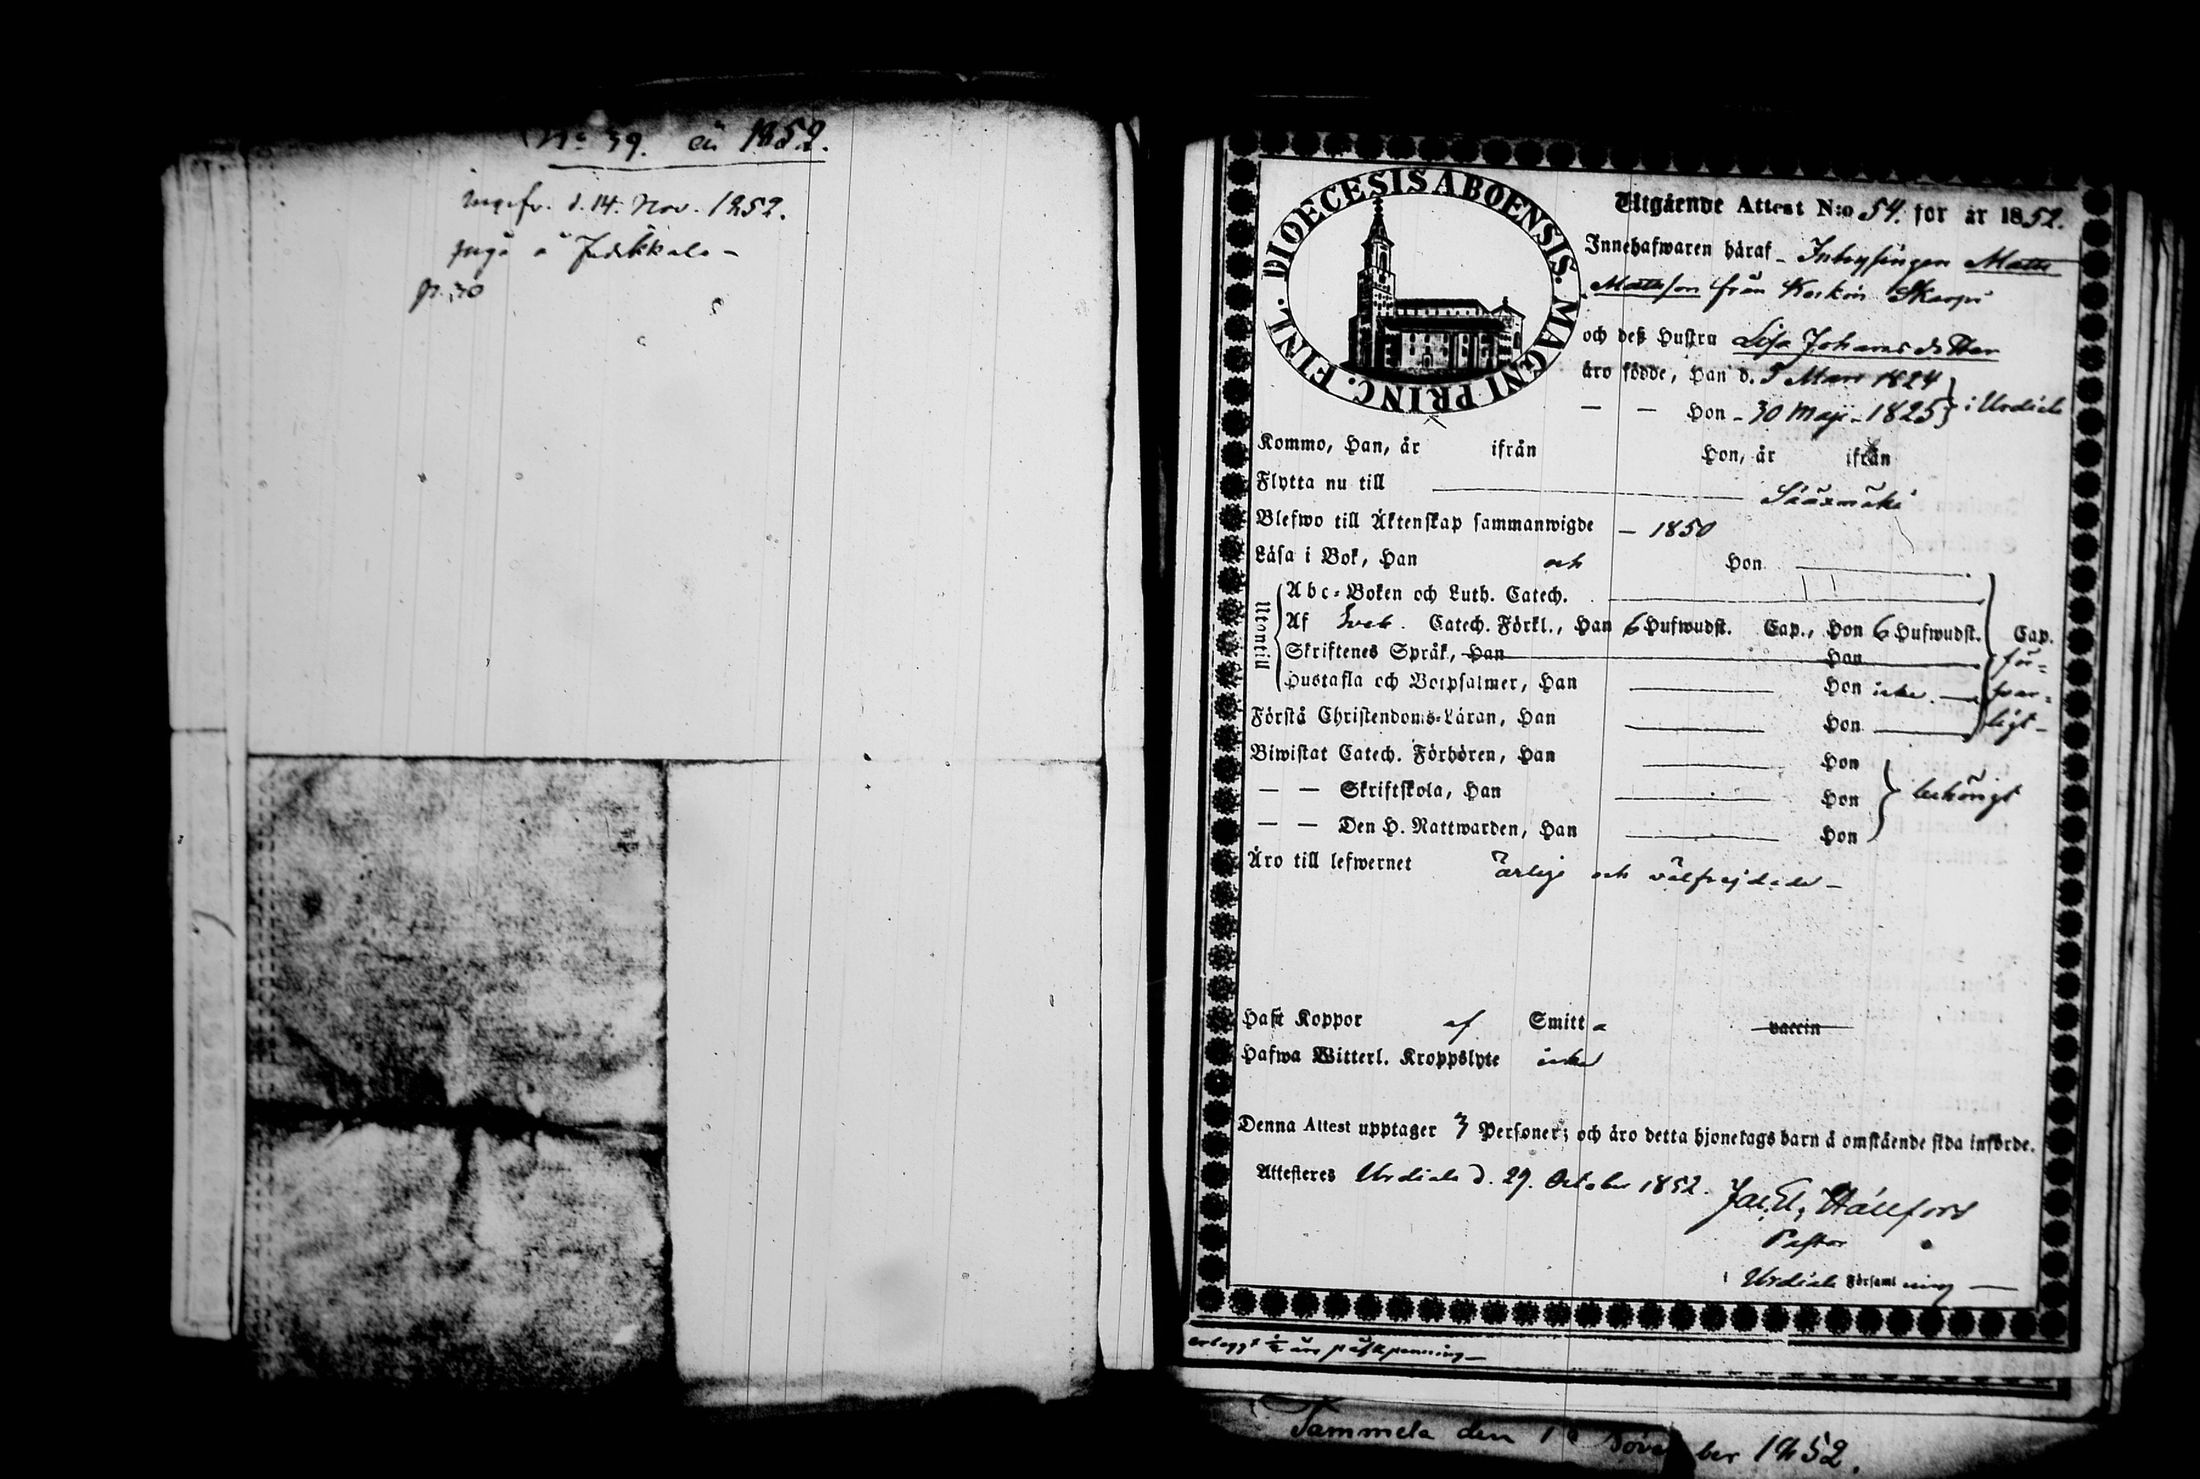 No 39. år 1852.
d. 14. Nov. 1852.
DIOECESIS ABOENSIS. MAGNI PRINC. FINL.
Utgående Attest N:o 54. för år 1852.
Innehafwaren häraf - Inhysingen Matts
Mattsson från
och deß Hustru Lisa Johansdotter
äro födde, Han d. 5 Mars 1824
— — Hon - 30 Maji - 1825 } i Urdiala
Kommo, Han, år ifrån Hon, år ifrån
Flytta nu till Sääxmäki
Blefwo till Äktenskap sammanwigde - 1850
Läsa i Bok, Han och Hon
Utontill
Abc-Boken och Luth. Catech.
Af Sveb. Catech. Förkl., Han 6 Hufwudst. Cap., Hon 6 Hufwudst. Cap.
Skriftenes Språk, Han Hon
Hustafla och Botpsalmer, Han Hon icke
Förstå Christendoms-Läran, Han Hon
för-
svar-
ligt -
Biwistat Catech. Förhören, Han Hon
— — Skriftskola, Han Hon
— — Den H. Nattwarden, Han Hon
behörigt
Äro till lefwernet ärlige och välfrejdade -
Haft Koppor af Smitta vaccin
Hafwa Witterl. Kroppslyte icke
Denna Attest upptager 3 Personer; och äro detta hjonelags barn å omstående sida införde.
Attesteres Urdiala d. 29. October 1852.
Pastor
i Urdiala Församlning
Tammela den November 1852.